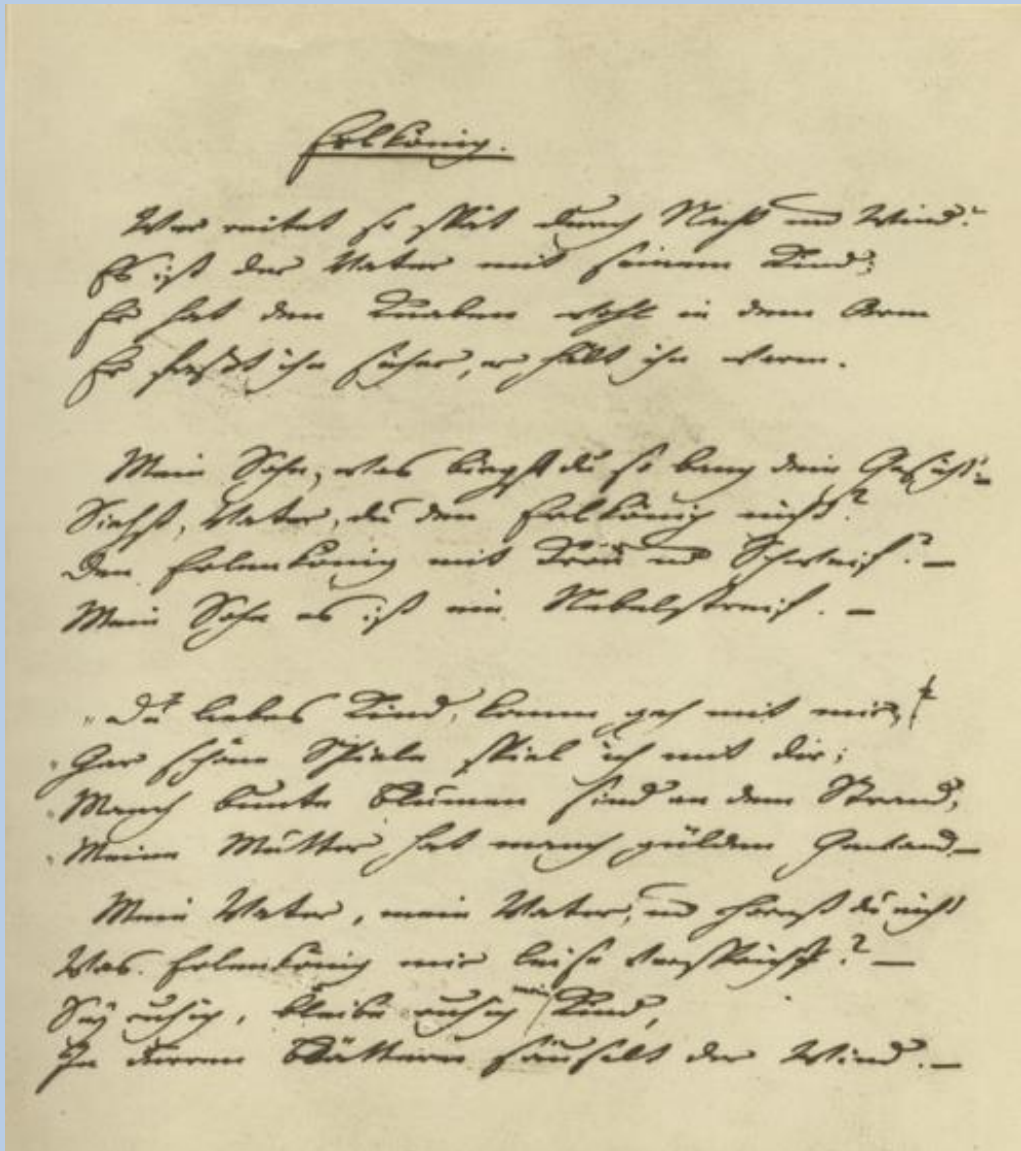 Erlkönig.
Wer reitet so spät durch Nacht und Wind?
Es ist der Vater mit seinem Kind;
Er hat den Knaben wohl in dem Arm
Er faßt ihn sicher, er hält ihn warm.
Mein Sohn, was birgst du so bang dein Gesicht?–
Siehst, Vater, du den Erlkönig nicht?
Den Erlenkönig mit Kron und Schweif?–
Mein Sohn es ist ein Nebelstreif.–
„Du liebes Kind, komm geh mit mir,
„Gar schöne Spiele spiel ich mit dir;
„Manch bunte Blumen sind an dem Strand,
„Meine Mutter hat manch gülden Gewand.–
Mein Vater, mein Vater, und hörest du nicht
Was Erlenkönig mir leise verspricht?–
Sey ruhig, bleibe ruhig mein Kind,
In dürren Blättern säuselt der Wind.–